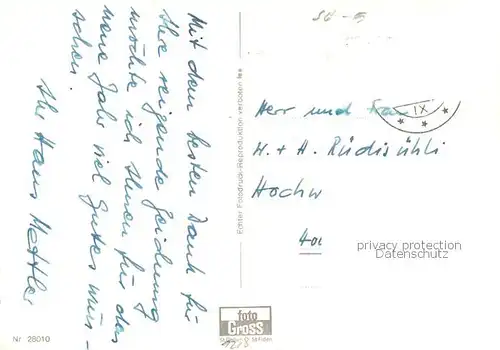 Mit dem besten Dank für
Ihre reizende Zeichnung
möchte ich Ihnen für das
neue Jahr viel Gutes wün-
schen.
Ihr Hans Mettler
Echter Fotodruck-Reproduktion verboten
Herr und Frau
W. + H. Rüdisühli
Hochw
IX
privacy protection
Datenschutz
foto
Gross
St. Gallen
Nr 28010